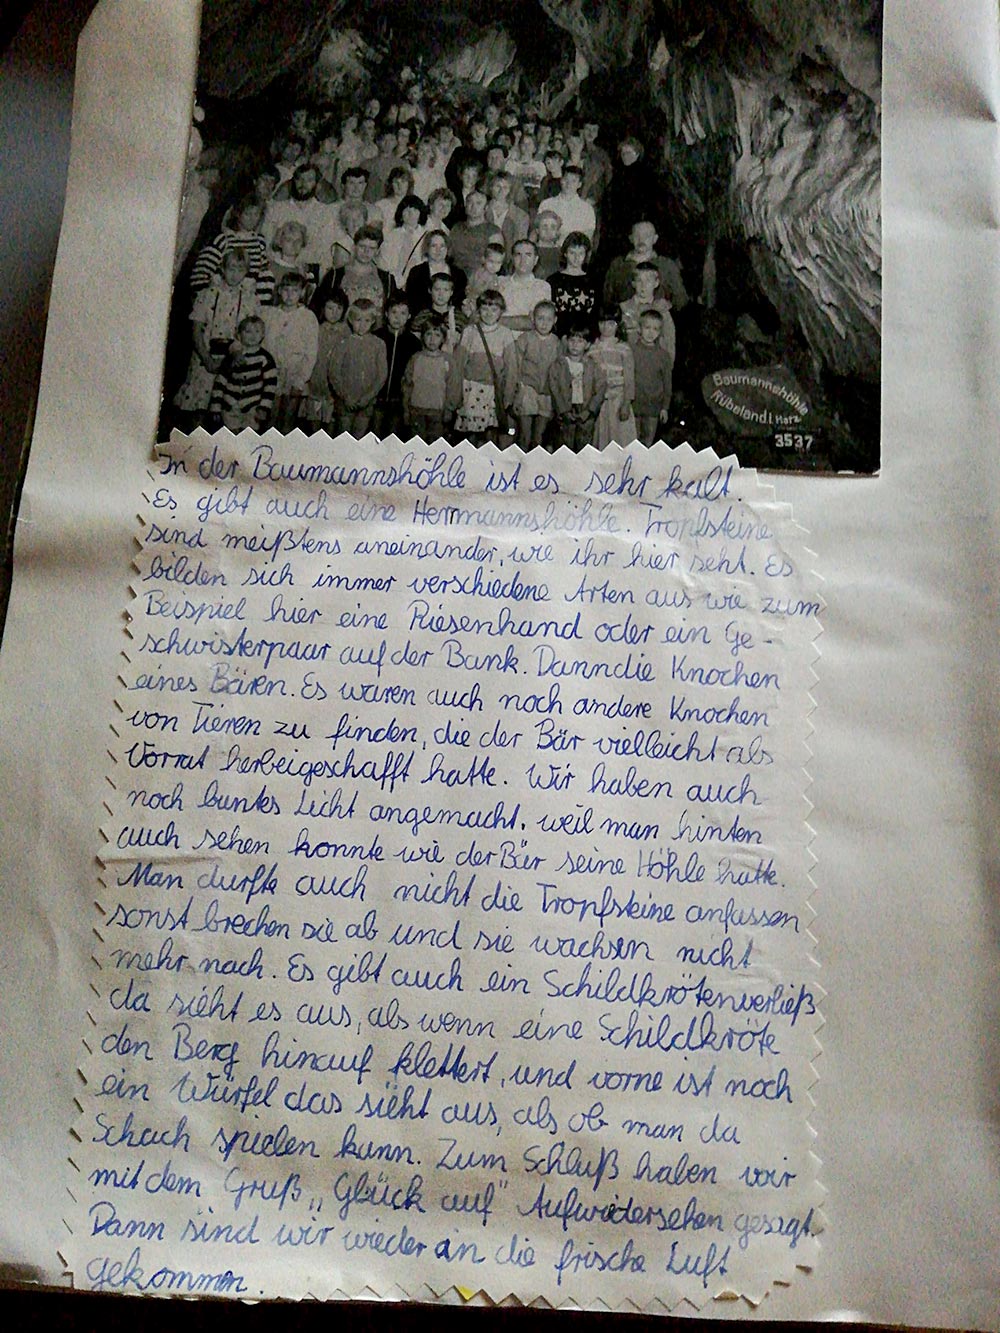 Baumannshöhle
Rübeland i. Harz
3537
In der Baumannshöhle ist es sehr kalt.
Es gibt auch eine Herrmannshöhle. Tropfsteine
sind meißtens aneinander, wie ihr hier seht. Es
bilden sich immer verschiedene Arten aus wie zum
Beispiel hier eine Riesenhand oder ein Ge-
schwisterpaar auf der Bank. Dann die Knochen
eines Bären. Es waren auch noch andere Knochen
von Tieren zu finden, die der Bär vielleicht als
Vorrat herbeigeschafft hatte. Wir haben auch
noch buntes Licht angemacht, weil man hinten
auch sehen konnte wie der Bär seine Höhle hatte.
Man durfte auch nicht die Tropfsteine anfassen
sonst brechen sie ab und sie wachsen nicht
mehr nach. Es gibt auch ein Schildkrötenverließ
da sieht es aus, als wenn eine Schildkröte
den Berg hinauf klettert, und vorne ist noch
ein Würfel das sieht aus, als ob man da
Schach spielen kann. Zum Schluß haben wir
mit dem Gruß „Glück auf" Aufwiedersehen gesagt.
Dann sind wir wieder an die frische Luft
gekommen.